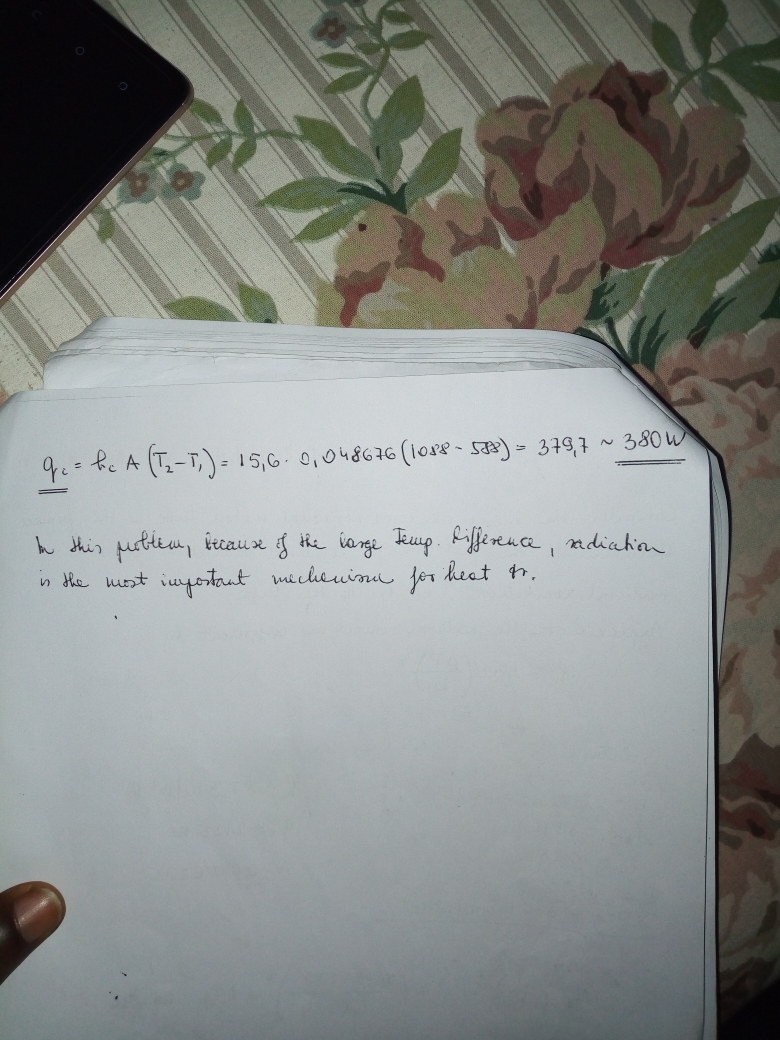 q_c = h_c A (T₂-T₁) = 15,6 · 0,048676 (1088 - 588) = 379,7 ~ 380W
In this problem, because of the large Temp. difference, radiation
is the most important mechanism for heat tr.